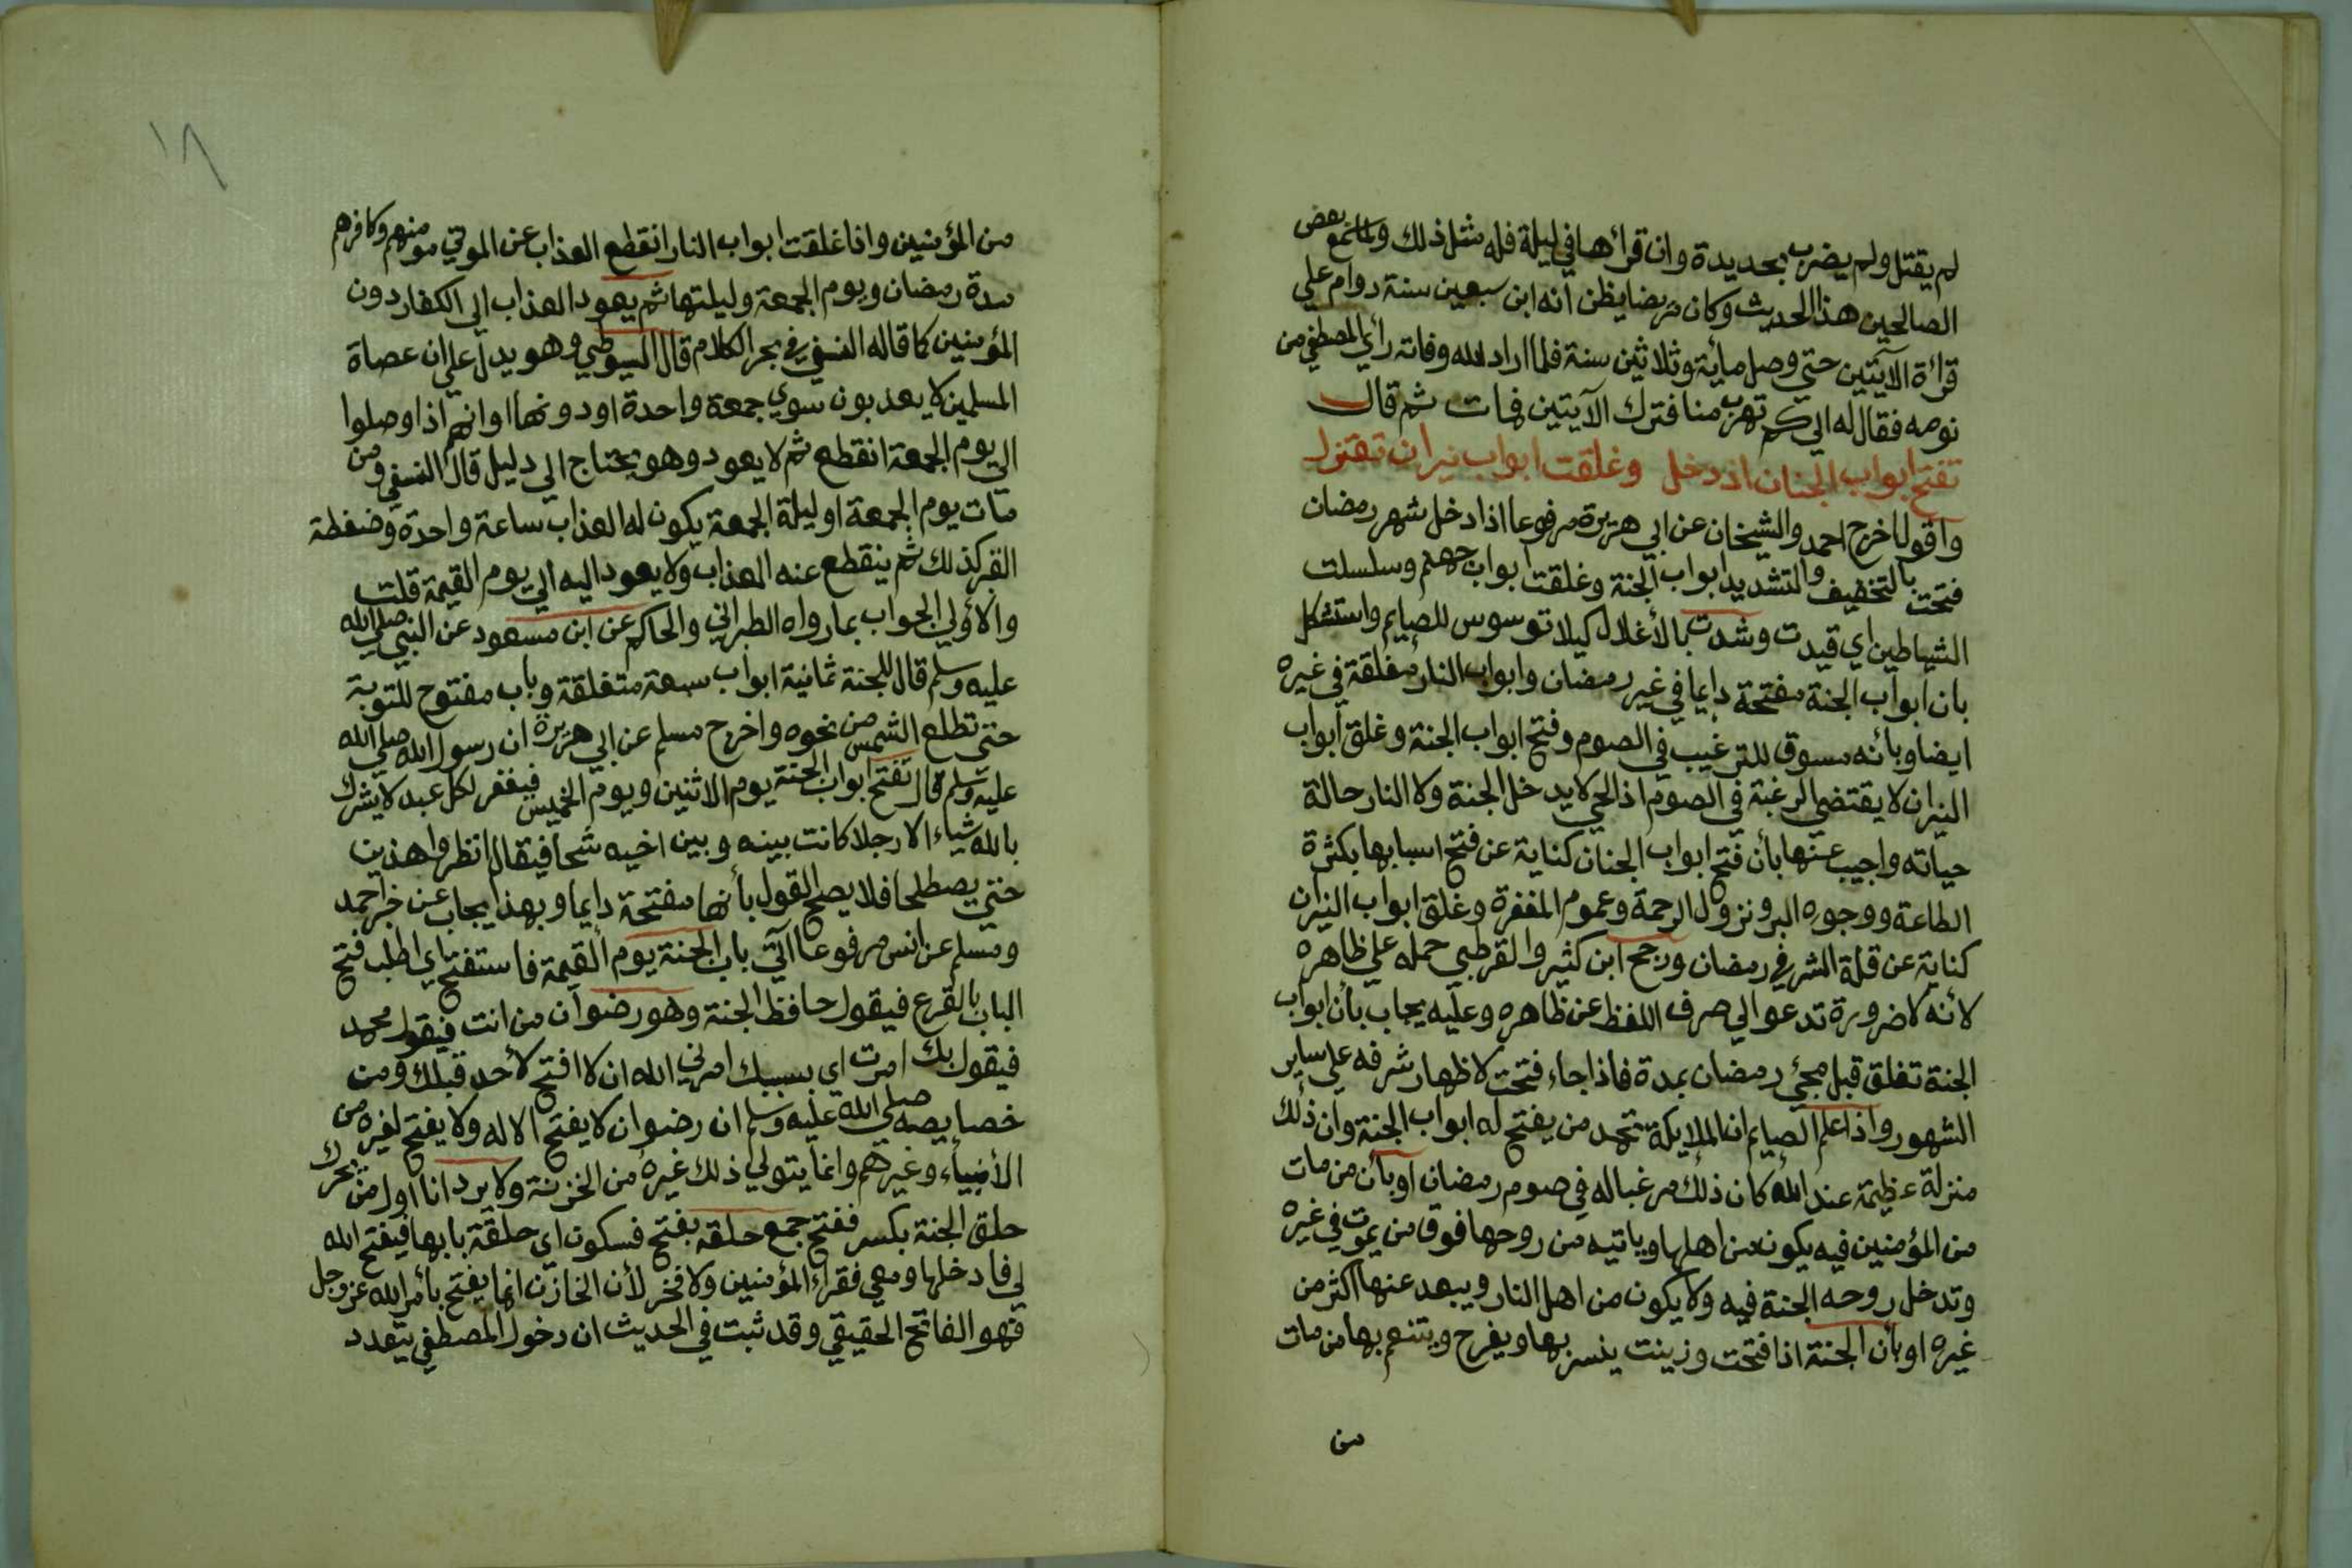 لم يقتل ولم يضرب بحديدة وان قرأها في ليلة فله مثل ذلك ولما سمع بعض
الصالحين هذا الحديث وكان مريضا يظن انه ابن سبعين سنة دوام علي
قرأة الآيتين حتي وصل مأية وثلاثين سنة فلما اراد الله وفاته رأي المصطفي من
نومه فقال له الي كم تهرب منا فترك الآيتين فمات ثم قال
تفتح ابواب الجنان اذ دخل وغلقت ابواب نيران تعتزل
واقول اخرج احمد والشيخان عن ابي هريرة مرفوعا اذا دخل شهر رمضان
فتحت بالتخفيف والتشديد ابواب الجنة وغلقت ابواب جهنم وسلسلت
الشياطين اي قيدت وشدت بالأغلال كيلا توسوس للصايم واستشكل
بان ابواب الجنة مفتحة دايما في غير رمضان وابواب النار مغلقة في غيره
ايضا وبأنه مسوق للترغيب في الصوم وفتح ابواب الجنة وغلق ابواب
النيران لا يقتضي الرغبة في الصوم اذ الحي لا يدخل الجنة ولا النار حالة
حياته واجيب عنها بأن فتح ابواب الجنان كناية عن فتح اسبابها بكثرة
الطاعة ووجوه البر ونزول الرحمة وعموم المغفرة وغلق ابواب النيران
كناية عن قلة الشر في رمضان ورجح ابن كثير والقرطبي حمله علي ظاهره
لأنه لا ضرورة تدعو الي صرف اللفظ عن ظاهره وعليه يجاب بأن ابواب
الجنة تغلق قبل مجئ رمضان بمدة فاذا جاء فتحت لاظهار شرفه علي ساير
الشهور واذا علم الصايم ان الملايكة تحمد من يفتح له ابواب الجنة وان ذلك
منزلة عظيمة عند الله كان ذلك مرغبا له في صوم رمضان او بأن من مات
من المؤمنين فيه يكون من اهلها ويأتيه من روحها فوق من يموت في غيره
وتدخل روحه الجنة فيه ولا يكون من اهل النار ويبعد عنها اكثر من
غيره او بأن الجنة اذا فتحت وزينت ينسر بها ويفرح ويتنعم بها من مات
من
١٨
من المؤمنين واذا غلقت ابواب النار انقطع العذاب عن الموتي مومنهم وكافرهم
مدة رمضان ويوم الجمعة وليلتها ثم يعود العذاب الي الكفار دون
المؤمنين كما قاله النسفي في بحر الكلام قال السيوطي وهو يدل علي ان عصاة
المسلمين لا يعذبون سوي جمعة واحدة او دونها او انهم اذا وصلوا
الي يوم الجمعة انقطع ثم لا يعود وهو يحتاج الي دليل قال النسفي ومن
مات يوم الجمعة او ليلة الجمعة يكون له العذاب ساعة واحدة وضغطة
القبر كذلك ثم ينقطع عنه العذاب ولا يعود اليه الي يوم القيمة قلت
والأولي الجواب بما رواه الطبراني والحاكم عن ابن مسعود عن النبي صلي الله
عليه وسلم قال للجنة ثمانية ابواب سبعة متغلقة وباب مفتوح للتوبة
حتي تطلع الشمس من نحوه واخرج مسلم عن ابي هريرة ان رسول الله صلي الله
عليه وسلم قال تفتح ابواب الجنة يوم الاثنين ويوم الخميس فيغفر لكل عبد لا يشرك
بالله شياء الا رجلا كانت بينه وبين اخيه شحنا فيقال انظروا هذين
حتي يصطلحا فلا يصح القول بأنها مفتحة دايما وبهذا يجاب عن خبر احمد
ومسلم عن انس مرفوعا آتي باب الجنة يوم القيمة فاستفتح اي اطلب فتح
الباب بالقرع فيقول حافظ الجنة وهو رضوان من انت فيقول محمد
فيقول بك امرت اي بسببك امرني الله ان لا افتح لأحد قبلك ومن
خصايصه صلي الله عليه وسلم ان رضوان لا يفتح الا له ولا يفتح لغيره من
الأنبياء وغيرهم وانما يتولي ذلك غيره من الخزنة ولا يرد انا اول من يحرك
حلق الجنة بكسر ففتح جمع حلقة بفتح فسكون اي حلقة بابها فيفتح الله
لي فادخلها ومعي فقراء المؤمنين ولا فخر لأن الخازن انما يفتح بأمر الله عز وجل
فهو الفاتح الحقيقي وقد ثبت في الحديث ان دخول المصطفي يتعدد